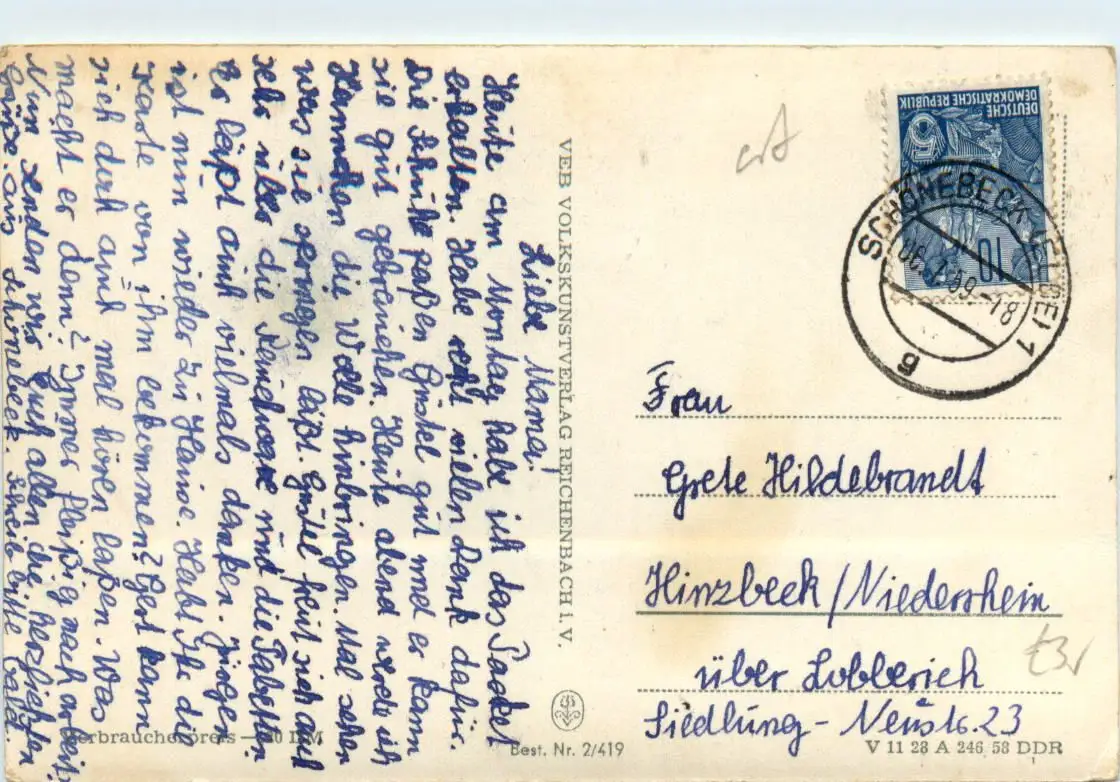 Liebe Mama!
Heute am Montag habe ich das Packet
erhalten. Habe recht vielen Dank dafür.
Die Schuhe paßen Gustel gut und er kann
sie gut gebrauchen. Heute abend werde ich
Hannchen die Wolle hinbringen. Mal sehen
was sie sagen läßt. Gustel freut sich auch
sehr über die und die Tabletten
Es läßt auch vielmals danken. Jürgen
ist nun wieder zu Hause. Habt Ihr die
Karte von ihm bekommen? Gert kann
sich doch auch mal hören laßen. Was
macht er denn? Immer fleißig nach arbeit.
Nun senden wir Euch allen die herzlichsten
Grüße aus Schönebeck. Schreib bitte
Verbraucherpreis — 20 DM
VEB VOLKSKUNSTVERLAG REICHENBACH i. V.
Best. Nr. 2/419
DEUTSCHE
DEMOKRATISCHE REPUBLIK
10
SCHÖNEBECK (ELBE) 1
-18
Frau
Grete Hildebrandt
Hinzbeck/Niederrhein
über Lobberich
Siedlung - Neustr. 23
V 11 28 A 246 58 DDR